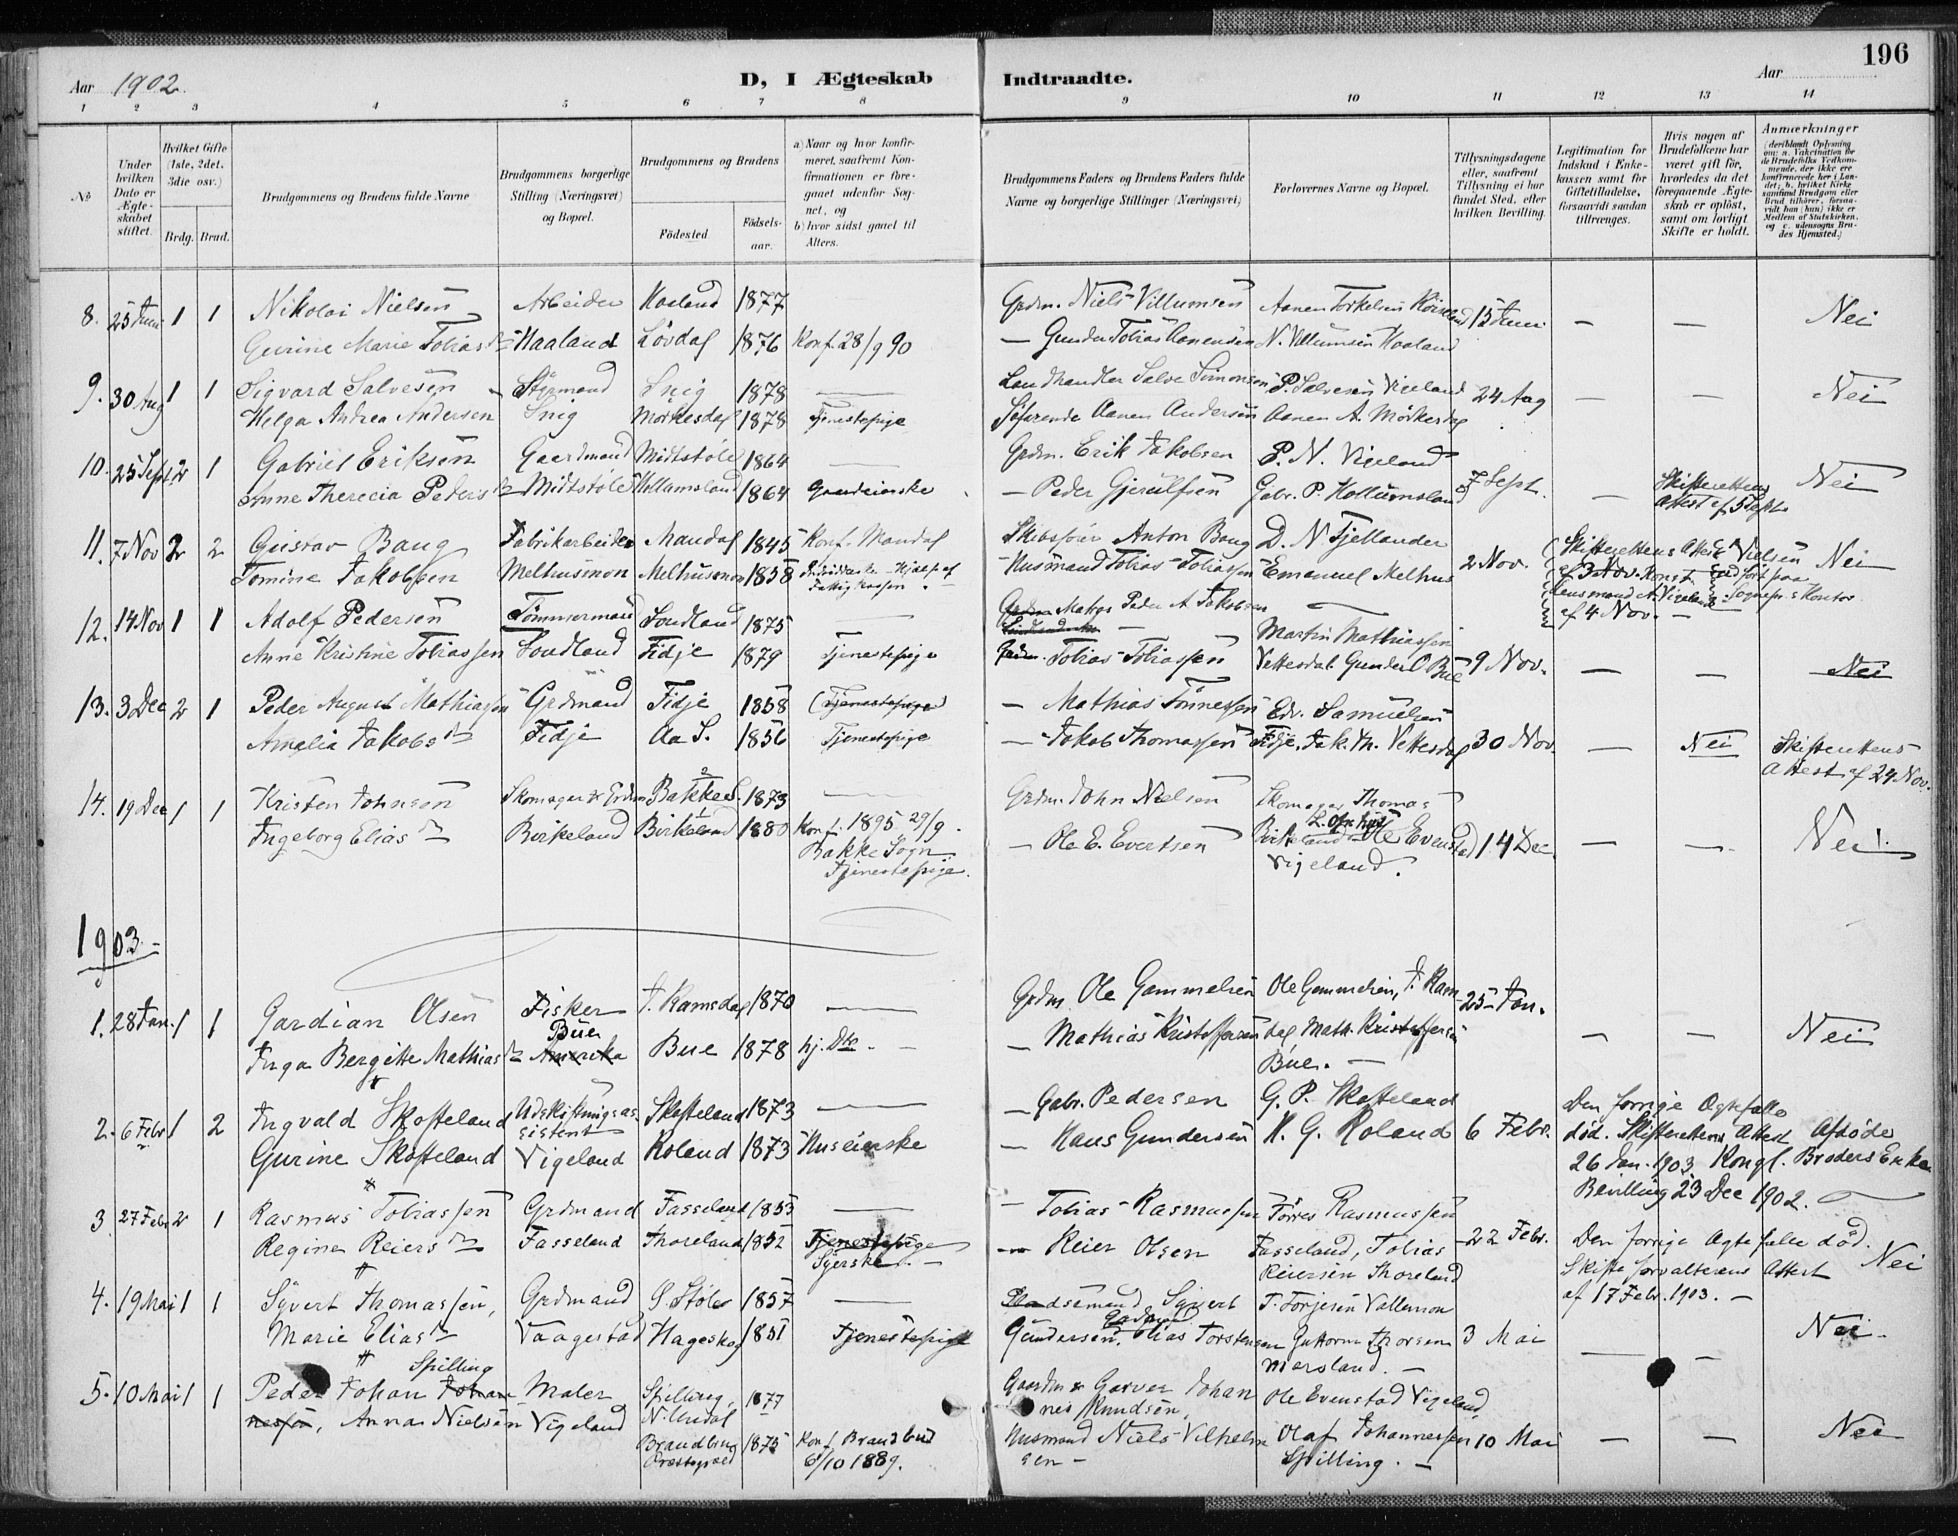 196
Aar 1902.
D, I Ægteskab Indtraadte.
Aar
1 2 3 4 5 6 7 8 9 10 11 12 13 14
№
Under hvilken Dato er Ægteskabet stiftet.
Hvilket Gifte (1ste, 2det, 3die osv.)
Brdg. Brud.
Brudgommens og Brudens fulde Navne
Brudgommens borgerlige Stilling (Næringsvei) og Bopæl.
Brudgommens og Brudens
Födested
Födselsaar.
a) Naar og hvor konfirmeret, saafremt Konfirmationen er foregaaet udenfor Sognet, og
b) hvor sidst gaaet til Alters.
Brudgommens Faders og Brudens Faders fulde Navne og borgerlige Stillinger (Næringsvei)
Forlovernes Navne og Bopæl.
Tillysningsdagene eller, saafremt Tillysning ei har fundet Sted, efter hvilken Bevilling.
Legitimation for Indskud i Enkekassen samt for Giftetilladelse, forsaavidt saadan tiltrænges.
Hvis nogen af Brudefolkene har været gift før, hvorledes da det foregaaende Ægteskab er oplöst, samt om lovligt Skifte er holdt.
Anmærkninger
8. 25 Juni 1 1 Nikolai Nielsen Arbeider Haaland 1877 Grdm. Niels Villumsen Aanen Torkelsen 15 Juni — — Nei
Gurine Marie Tobiasdr Haaland Lövdal 1876 Konf. 28/9 90 — Gunder Tobias Aanensen N. Villumsen Haaland
9. 30 Aug 1 1 Sigvard Salvesen Styrmand Snig 1878 — Landhandler Salve Simonsen P. Salvesen Vigeland 24 Aug — — Nei
Helga Andrea Andersen Snig Mörkesdal 1878 Tjenestepige Söfarende Aanen Andersen Aanen A. Mörkesdal
10. 25 Sept 2 1 Gabriel Eriksen Gaardmand Midtstöl 1864 — Grdm. Erik Jakobsen P. N. Vigeland 7 Sept. — Skifterettens Attest af 5 Sept. Nei
Anne Therecia Pedersdr Midtstöl 1864 — Peder Gjerulfsen Gabr. P.
11. 7 Nov 2 2 Gustav Bang Fabrikarbeider Mandal 1845 Konf. Mandal Skibsförer Anton Bang D. N Fjellander 2 Nov. Skifterettens Attest af 3 Nov. Nei
Tomine Jakobsen Melhusmon Melhusmon 1858 Husmand Tobias Tobiassen Emanuel Melhus
Lensmand A. Vigeland af 4 Nov. —
12. 14 Nov 1 1 Adolf Pedersen Tömmermand Soudland 1875 — Matros Peder A Jakobsen Martin Mathiassen
Anne Kristine Tobiassen Soudland Fidje 1879 Tjenestepige Grdm. Tobias Tobiassen Vettesdal. Gunder O Bue 9 Nov. — — Nei
13. 3 Dec 2 1 Peder August Mathiassen Grdmand Fidje 1858 (Tjenestepige) — Mathias Tönnessen Edv. Samuelsen
Amalia Jakobsdr Fidje Aa S. 1856 Tjenestepige — Jakob Thomassen Fidje, Jak. Th. Vettesdal 30 Nov. — Nei Skifterettens Attest af 24 Nov.
14. 19 Dec 1 1 Kristen Johnsen Skomager Bakke S. 1873 — Grdm. John Nielsen Skomager Thomas
Ingeborg Eliasdr Birkeland Birkeland 1880 Konf. 1895 29/9. Bakke Sogn Tjenestepige. — Ole E. Evertsen Birkeland Ole Evenstad Vigeland. 14 Dec. — — Nei!
1903.
1. 28 Jan. 1 1 Gardian Olsen Fisker J. Ramsdal 1870 — Grdm. Ole Gammelsen Ole Gammelsen, J. Ramsdal 25 Jan.
Inga Bergitte Mathiasdr Bue Amerika Bue 1878 hj. Do. — — Mathias Kristoffersen Math. Kristoffersen Bue. — — — Nei
2. 6 Febr 1 2 Ingvald Skofteland Udskiftningsassistent Skofteland 1873 — — Gabr. Pedersen G. P. Skofteland
Gurine Skofteland Vigeland Roland 1873 Huseierske — Hans Gundersen H. G. Roland 6 Febr.
Den forrige Ægtefælle död. Skifterettens Attest 26 Jan. 1903 Kongl. Bevilling 23 Dec 1902.
Afdöde Broders Enke
3 27 Febr 2 1 Rasmus Tobiassen Grdmand Fasseland 1853 — — Tobias Rasmussen Törres Rasmussen
Regine Reiersdr Fasseland Thoreland 1852 Tjenestepige Syerske. — — Reier Olsen Fasseland, Tobias Reiersen Thoreland 22 Febr.
Den forrige Ægtefælle död. Skifteforvalterens Attest af 17 Febr. 1903. — Nei
4. 19 Mai 1 1 Syvert Thomassen, Grdmand S. Stöle 1857 — T. Torjesen Vallemon
Marie Eliasdr Vaagestad Hageskog 1851 Tjenestepige Gundersen. Elias Torstensen Guttorm Thorsen 3 Mai — — Nei.
5. 10 Mai 1 1 Peder Johan Johannessen, Spilling Maler Spilling, N. Undal 1877 Gaardm & Garver Johannes Knudsen, Ole Evenstad Vigeland,
Anna Nielsen Vigeland 1875 Konf. 6/10 1889. Husmand Niels Vilhelmsen — Olaf Johannessen Spilling. — 10 Mai — — Nei